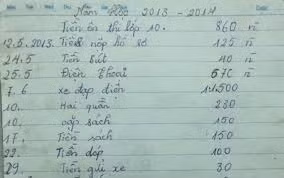 Năm Học 2013 - 2014
Tiền ôn thi lớp 10. 860 n
12.5.2013. Tiền nộp hồ sơ 125 n
24.5 Tiền bút 40 n
25.5 Điện thoại 570 n
7.6 xe đạp điện 11.500
10. Hai quần 280
10. cặp sách 150
17. Tiền sách 150
22. Tiền dép 100
29. Tiền gửi xe 30